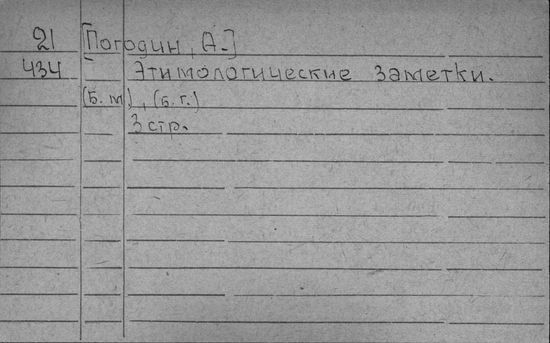 21 [Погодин, А.]
434 Этимологические заметки.
(Б.м), (б.г.)
3 стр.